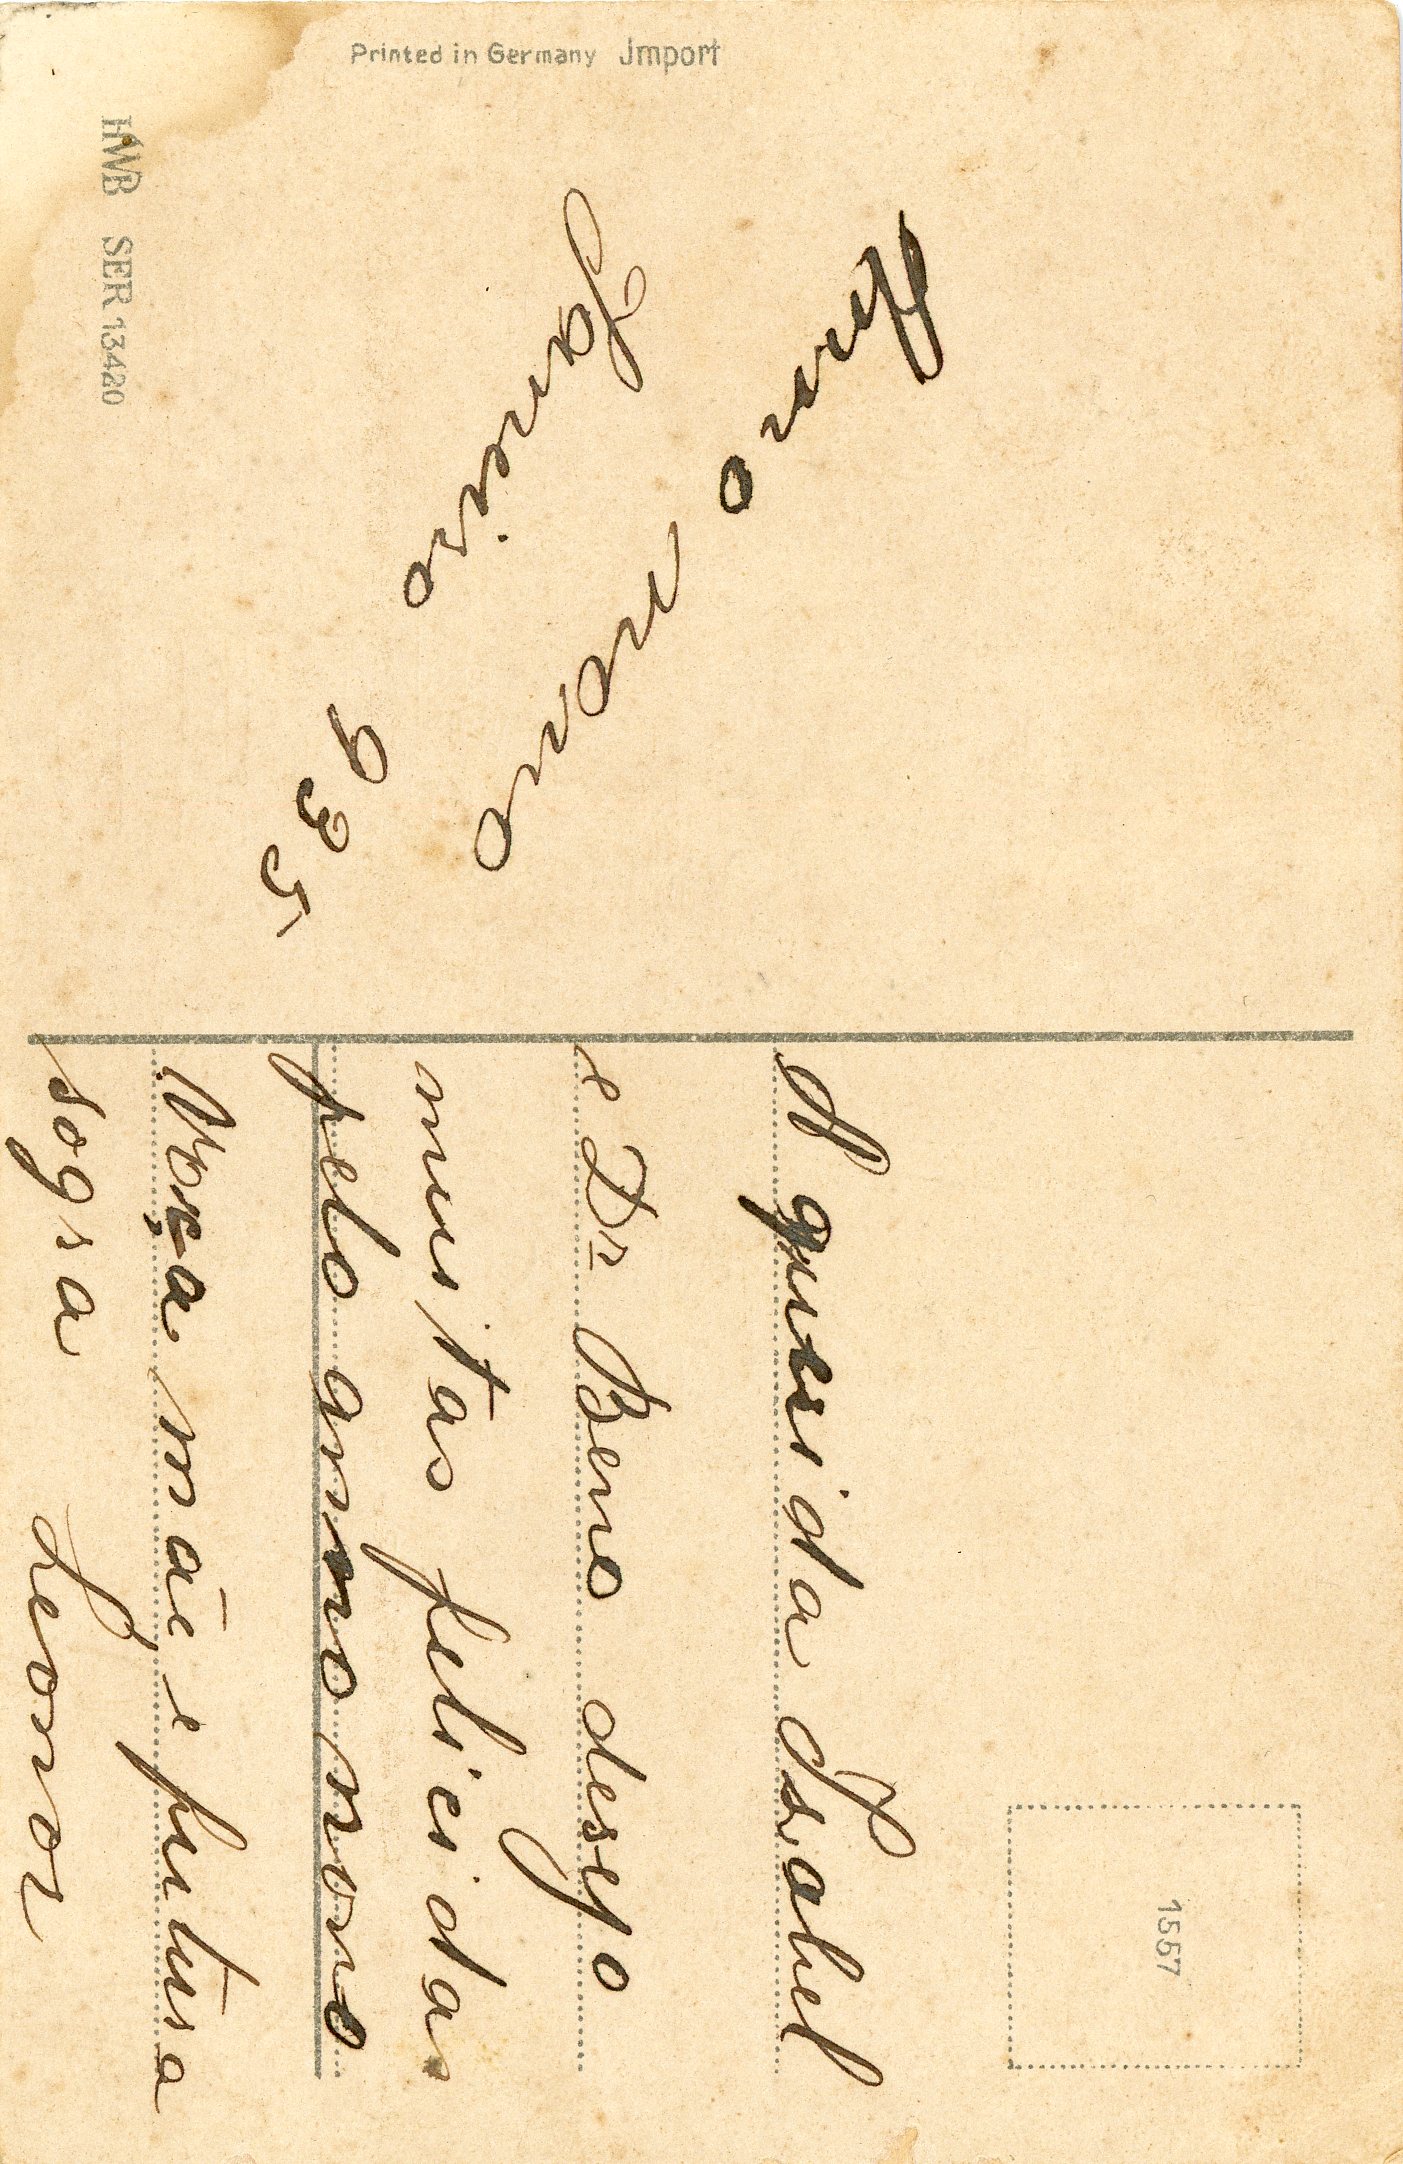 Printed in Germany Jmport
HWB SER 13420
Anno
novo
Janeiro
935
1557
A querida Isabel
e Dr Beno desejo
muitas felicidas
pelo anno novo
mãe e futura
sogra
Leonor